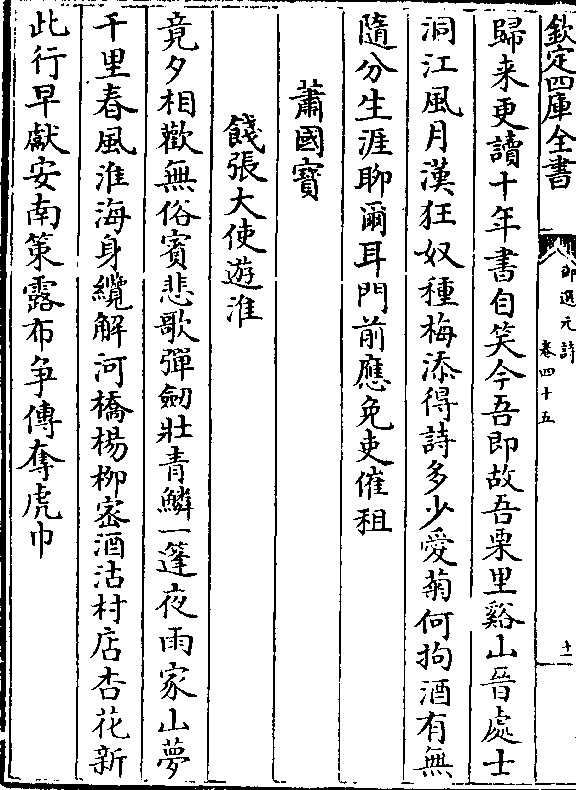 欽定四庫全書
御選元詩
卷四十五
十一
歸来更讀十年書自笑今吾即故吾栗里谿山晉處士
洞江風月漢狂奴種梅添得詩多少愛菊何拘酒有無
隨分生涯聊爾耳門前應免吏催租
蕭國寳
餞張大使遊淮
竟夕相歡無俗賓悲歌彈劒壯青鱗一篷夜雨家山夢
千里春風淮海身纜解河橋楊柳密酒沽村店杏花新
此行早獻安南策露布争傳奪虎巾